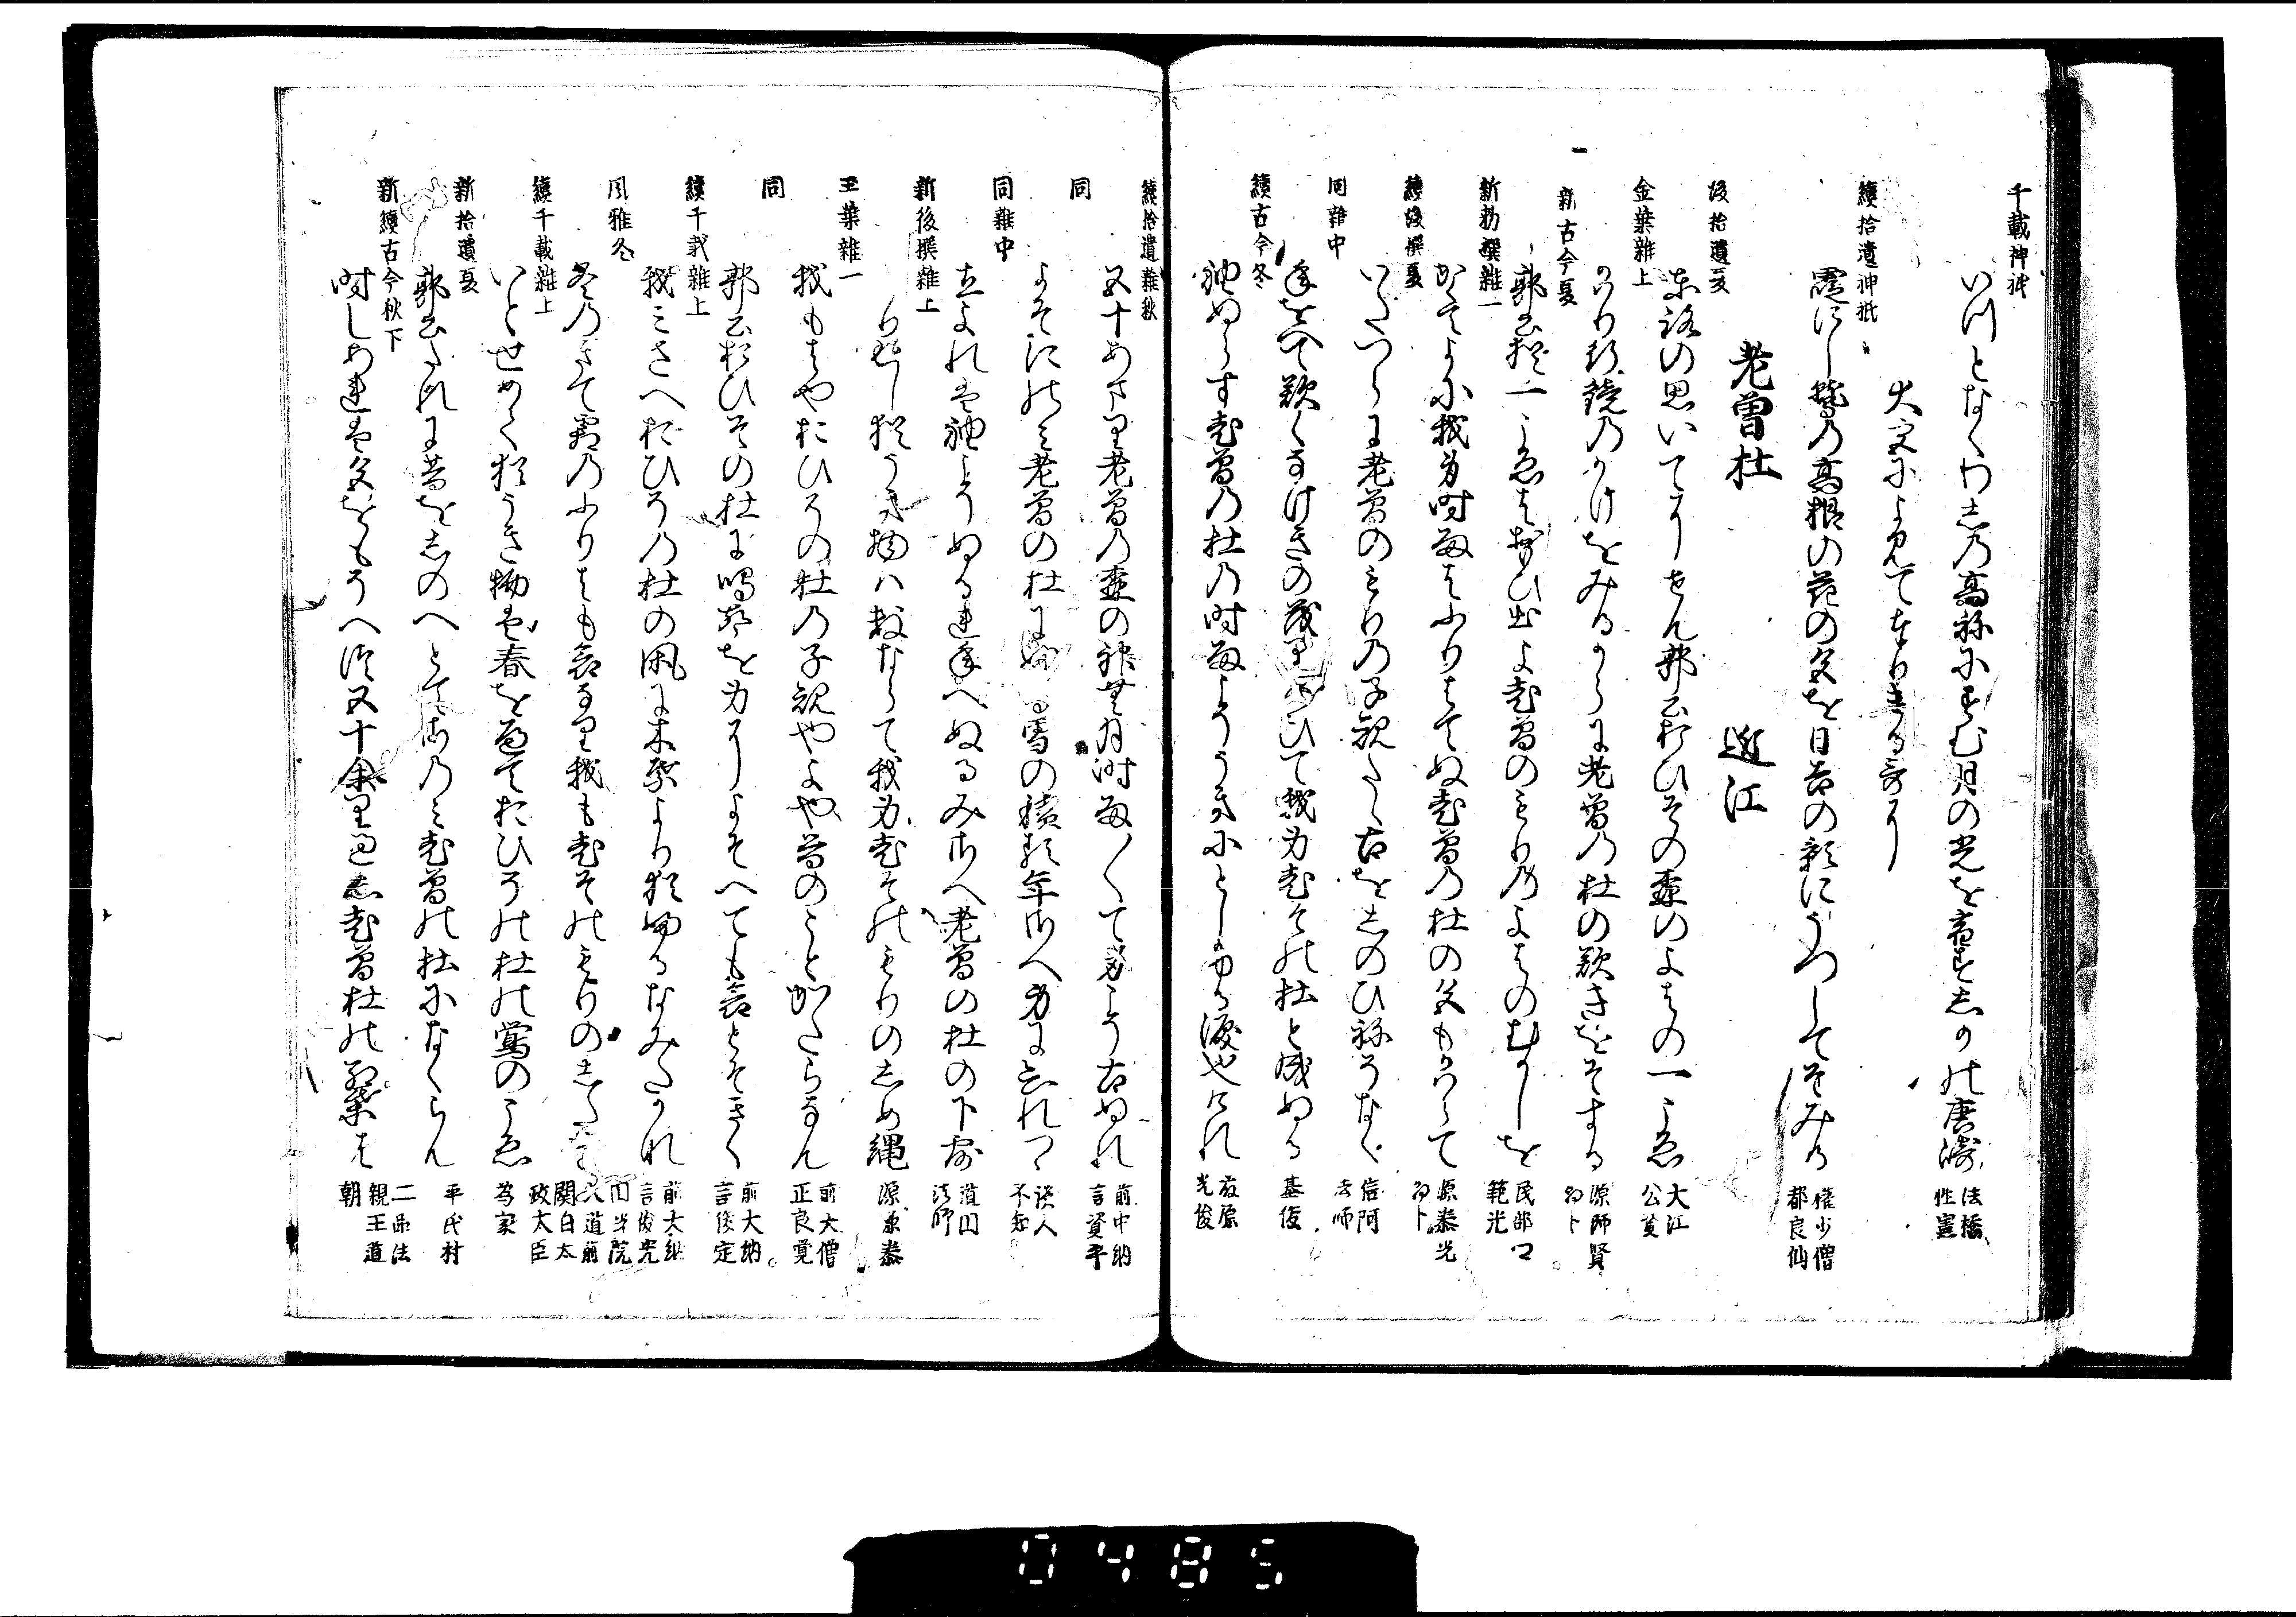 千載神祇
いつとなくわしの高ねにすむ月の光をやとすしかの唐崎 法橋性憲
大宮によみてたてまつりける
續拾遺神祇
霊にし鷲の高根の花の色を日吉の影にうつしてそみる 権少僧都良仙
老曽杜 近江
後拾遺夏
東路の思いてにせん郭公おひその森のよはの一こゑ 大江公資
金葉雜上
かはり行鏡のかけをみるからに老曽の杜の歎きをそする 源師賢
新古今夏
郭公猶一こゑはおもひ出よ老曽のもりのよはのむかしを 民部卿範光
新勅撰雜一
かせよに我身時雨はふりはてぬ老曽の杜の色もかはらて 源泰光
續後撰夏
いたつらに老曽のもりの子規たゝ古をしのひねそなく 信阿法師
同雜中
年をへて歎くなけきの茂りあひて我身老その杜と成ぬる 基俊
續古今冬
袖ぬらす老曽の杜の時雨こそうきにとしふる涙也けれ 藤原光俊
續拾遺雜秋
五十あまり老曽の森の神無月時雨〳〵て身こそ古ぬれ 前中納言資平
同
よそにのみ老曽の杜にふる雪の積る年さへ身に忘れつゝ 讀人不知
同雜中
立よれは袖こそぬるれ年へぬるみさへ老曽の杜の下露 道因法師
新後撰雜上
猶うき物は数ならて我身老そのもりのしめ縄 源兼泰
玉葉雜一
我もはやおひその杜の子規やよや昔のことかたらなん 前大僧正良覚
同
郭公おひその杜に鳴声を身によそへても哀とそきく 前大納言俊定
續千載雜上
我みさへおひその杜の風に木葉より猶ふるなみたかな 前大納言俊光
風雅冬
冬のきて霜のふりはも哀なり我も老そのもりのした草 円光院入道前関白太政大臣
續千載雜上
いとせめて猶うき物は春を過ておひその杜の鶯のこゑ 為家
新拾遺夏
郭公たれに昔をしのへとてさのみ老曽の杜になくらん 平氏村
新續古今秋下
時しあれは色をもそへつ五十余り過し老曽杜の紅葉は 二品法親王道朝